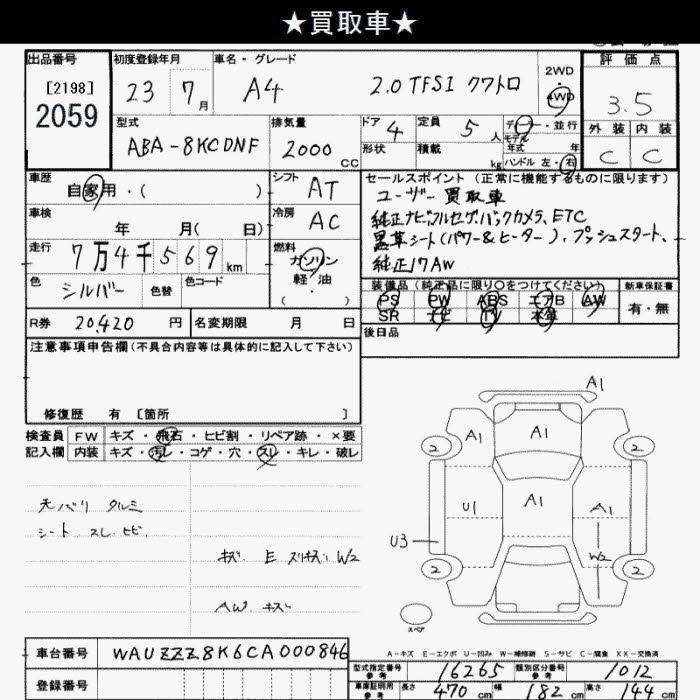 ★買取車★
出品番号 初度登録年月 車名・グレード 評価点
[2198]
2059
23 7月 A4 2.0 TFSI クワトロ 2WD・4WD 3.5
型式 排気量 ドア 4 定員 5人 ディーラー・並行 外装 内装
ABA-8KCDNF 2000cc 形状 積載 kg モデル年式 年 ハンドル 左・右 C C
車歴 自家用・( ) シフト AT
セールスポイント(正常に機能するものに限ります)
ユーザー買取車
純正ナビフルセグバックカメラ、ETC
黒革シート(パワー&ヒーター)、プッシュスタート、
純正17AW
車検 年 月( 日) 冷房 AC
走行 7万4千569km 燃料 ガソリン・軽油・( )
色 シルバー 色替 色コード
装備品(純正品に限り○をつけてください) 新車保証書
PS PW ABS エアB AW 有・無
SR ナビ TV 本革
R券 20,420円 名変期限 月 日 後日品
注意事項申告欄(不具合内容等は具体的に記入して下さい)
修復歴 有 [箇所 ]
検査員 FW キズ・飛石・ヒビ割・リペア跡・×要
記入欄 内装 キズ・汚レ・コゲ・穴・スレ・キレ・破レ
天バリ タルミ
シート スレ ヒビ
キズ E スリキズ W2
AW キズ
A1
A1 A1
2 2
U1 A1 A1
U3 W2
2 2
スペア
A-キズ E-エクボ U-凹み W-補修跡 S-サビ C-腐食 XX-交換済
車台番号 WAUZZZ8K6CA000846
登録番号
型式指定番号 参考 16265 類別区分番号 参考 1012
車庫証明用 参考 長さ 470cm 幅 182cm 高さ 144cm